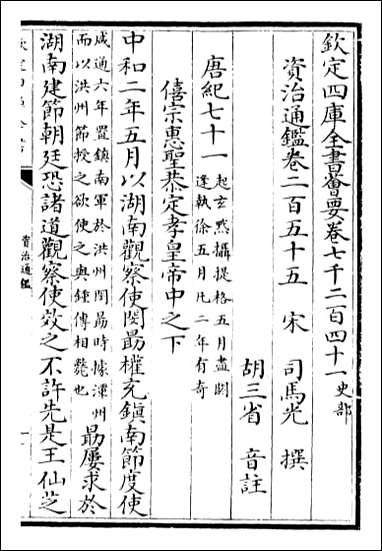 欽定四庫全書薈要卷七千二百四十一史部
資治通鑑卷二百五十五 宋 司馬光 撰
胡三省 音註
唐紀七十一起玄黓攝提格五月盡閼逢執徐五月凡二年有奇
僖宗惠聖恭定孝皇帝中之下
中和二年五月以湖南觀察使閔勗權充鎮南節度使
咸通六年置鎮南軍於洪州閔勗時據潭州而以洪州節授之欲使之與鍾傳相斃也勗屢求於
湖南建節朝廷恐諸道觀察使效之不許先是王仙芝
資治通鑑